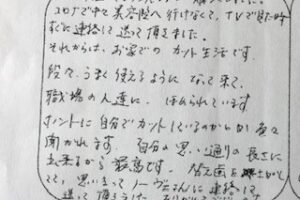 コロナで中々美容院へ行けなくて、TVで見た時
すぐに連絡して送って頂きました。
それからは、お家でのカット生活です。
段々、うまく使えるようになって来て、
職場の人達に、ほめられています
ホントに自分でカットしているのかと色々
聞かれます。自分の思い通りの長さに
出来るから最高です。
思い立ってノーヴェさんに連絡して
送って頂きました。